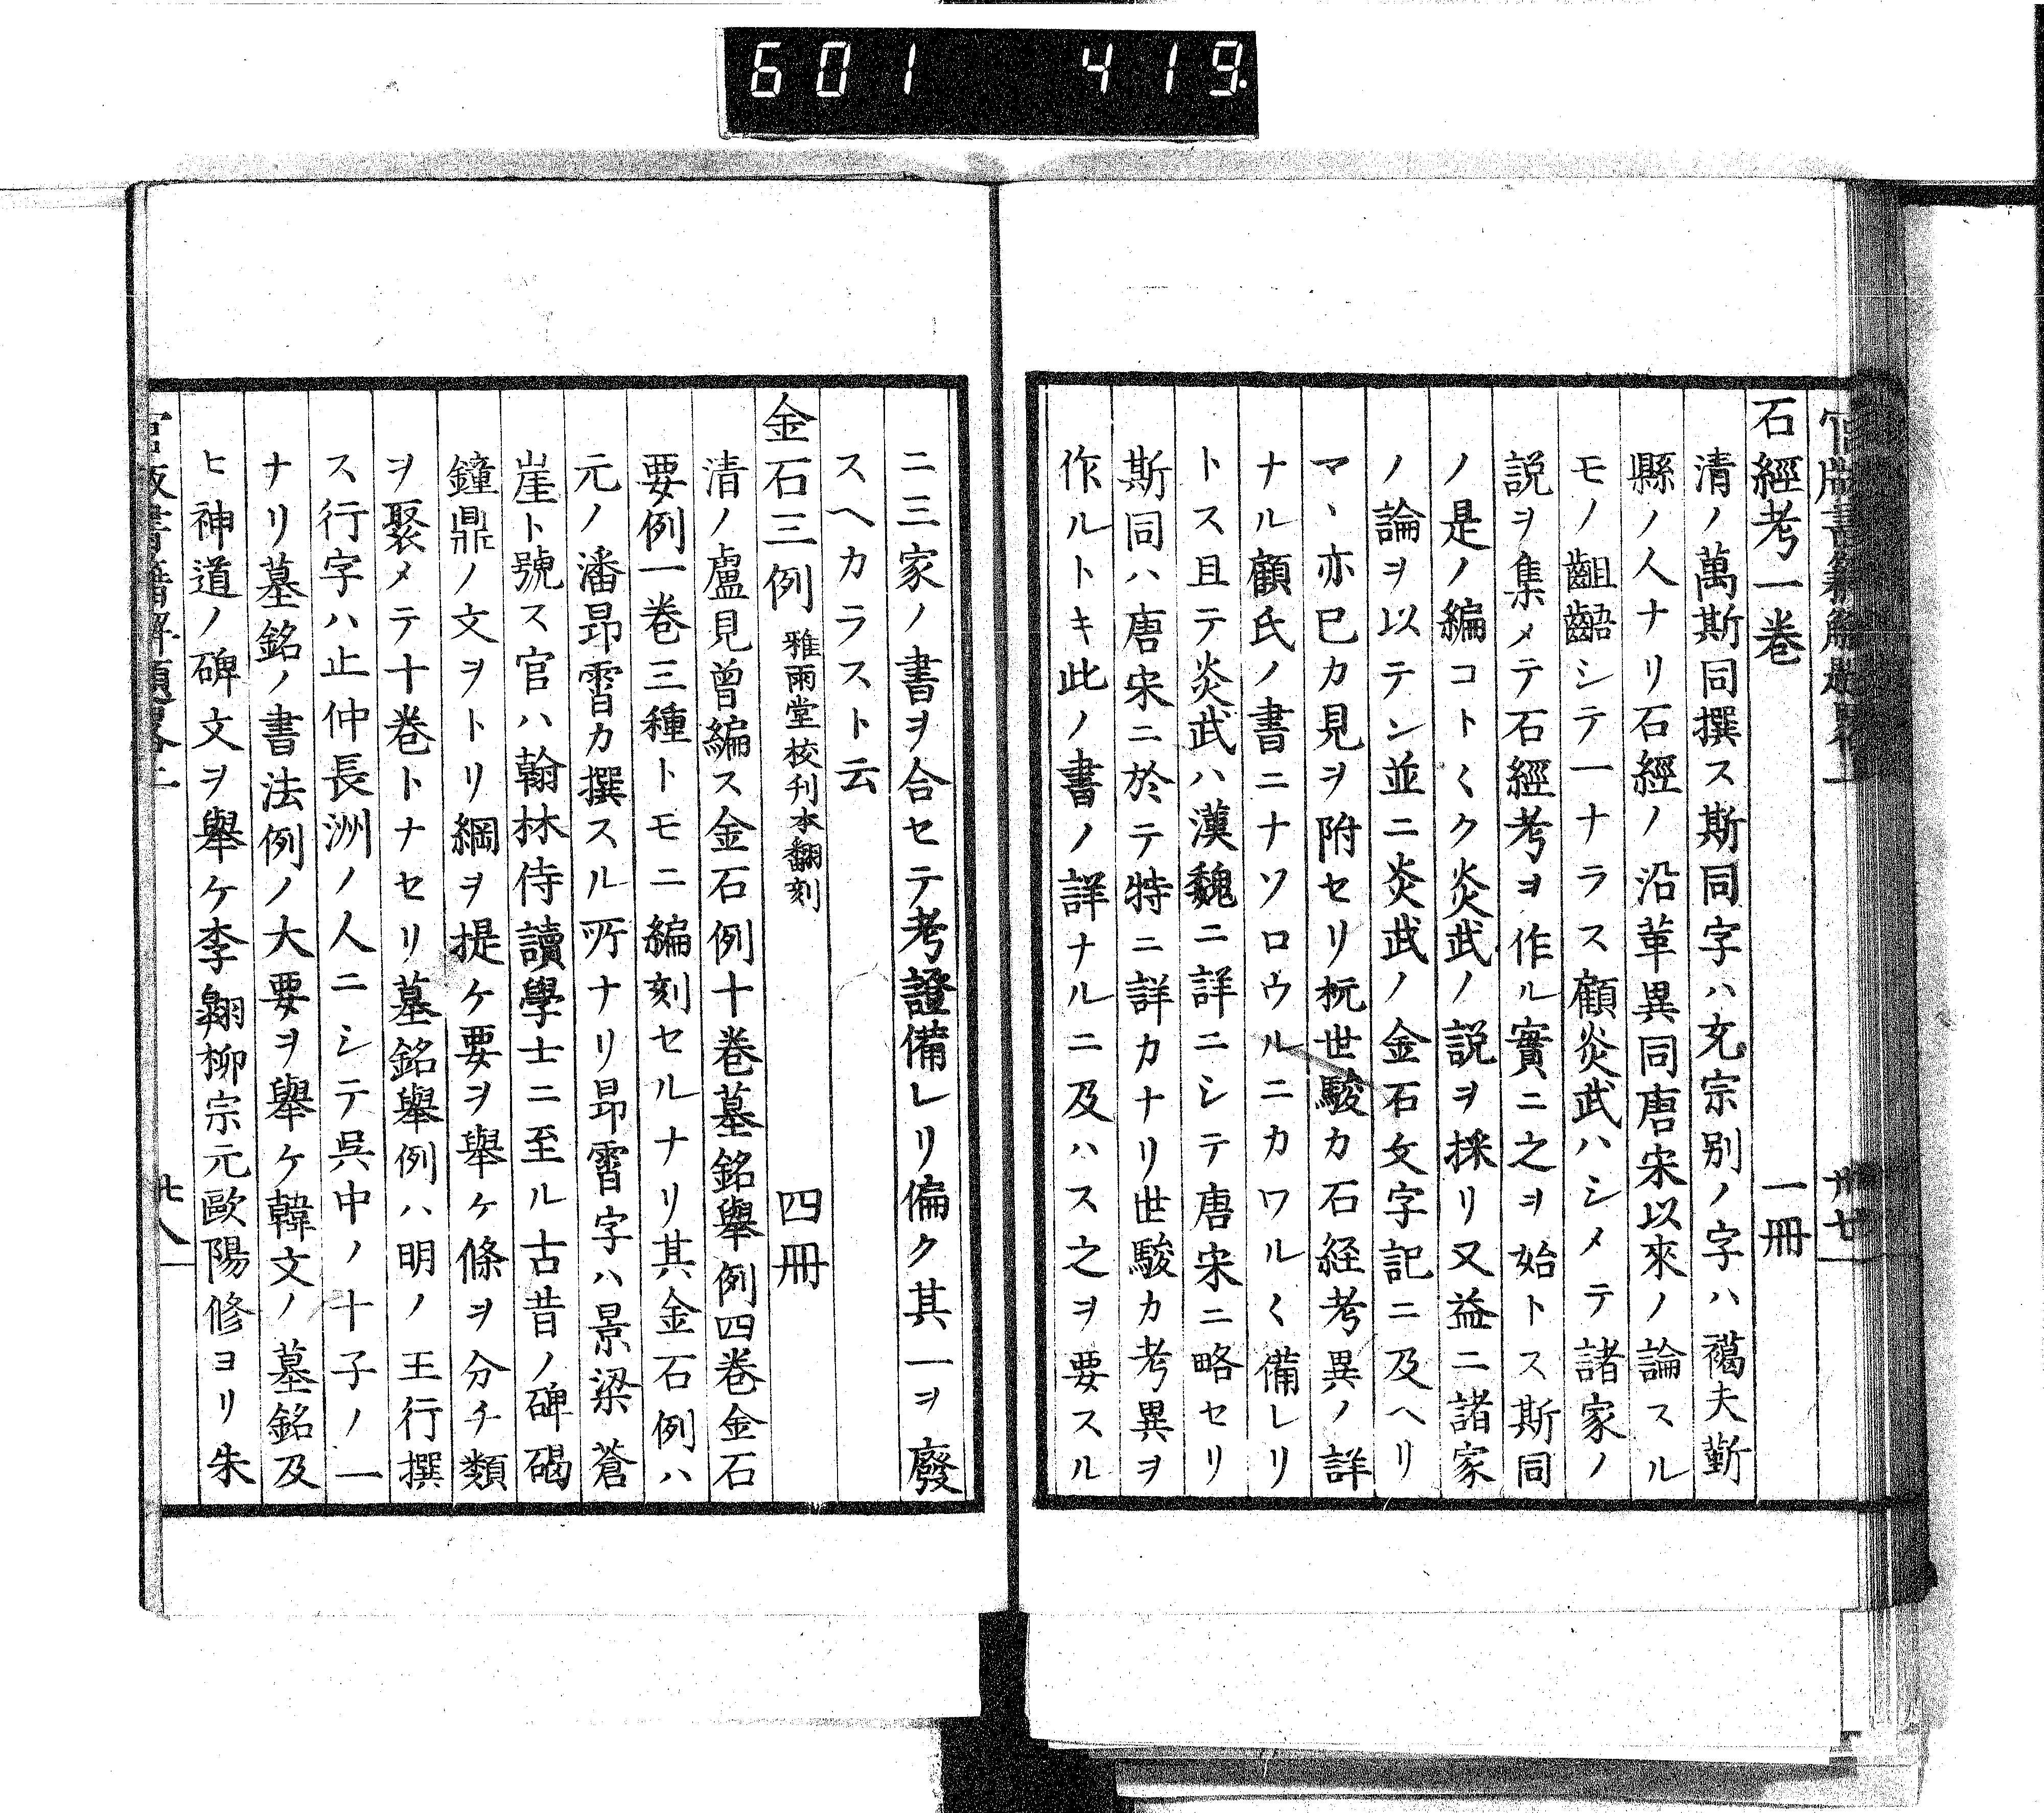 601 419
石經考一卷 一冊
清ノ萬斯同撰ス斯同字ハ充宗別ノ字ハ褐夫鄞
縣ノ人ナリ石經ノ沿革異同唐宋以來ノ論スル
モノ齟齬シテ一ナラス顧炎武ハシメテ諸家ノ
説ヲ集メテ石經考ヲ作ル實ニ之ヲ始トス斯同
ノ是ノ編コト〱ク炎武ノ説ヲ採リ又益ニ諸家
ノ論ヲ以テシ並ニ炎武ノ金石文字記ニ及ヘリ
マヽ亦已カ見ヲ附セリ杭世駿カ石経考異ノ詳
ナル顧氏ノ書ニナソロウルニカワル〱備レリ
トス且テ炎武ハ漢魏ニ詳ニシテ唐宋ニ略セリ
斯同ハ唐宋ニ於テ特ニ詳カナリ世駿カ考異ヲ
作ルトキ此ノ書ノ詳ナルニ及ハス之ヲ要スル
ニ三家ノ書ヲ合セテ考證備レリ偏ク其一ヲ廢
スヘカラスト云
金石三例 雅雨堂校刋本翻刻 四冊
清ノ盧見曾編ス金石例十卷墓銘舉例四卷金石
要例一卷三種トモニ編刻セルナリ其金石例ハ
元ノ潘昻霄カ撰スル所ナリ昻霄字ハ景梁蒼
崖ト號ス官ハ翰林侍讀學士ニ至ル古昔ノ碑碣
鐘鼎ノ文ヲトリ綱ヲ提ケ要ヲ舉ケ條ヲ分チ類
ヲ聚メテ十卷トナセリ墓銘舉例ハ明ノ王行撰
ス行字ハ止仲長洲ノ人ニシテ呉中ノ十子ノ一
ナリ墓銘ノ書法例ノ大要ヲ舉ケ韓文ノ墓銘及
ヒ神道ノ碑文ヲ舉ケ李翺柳宗元歐陽修ヨリ朱